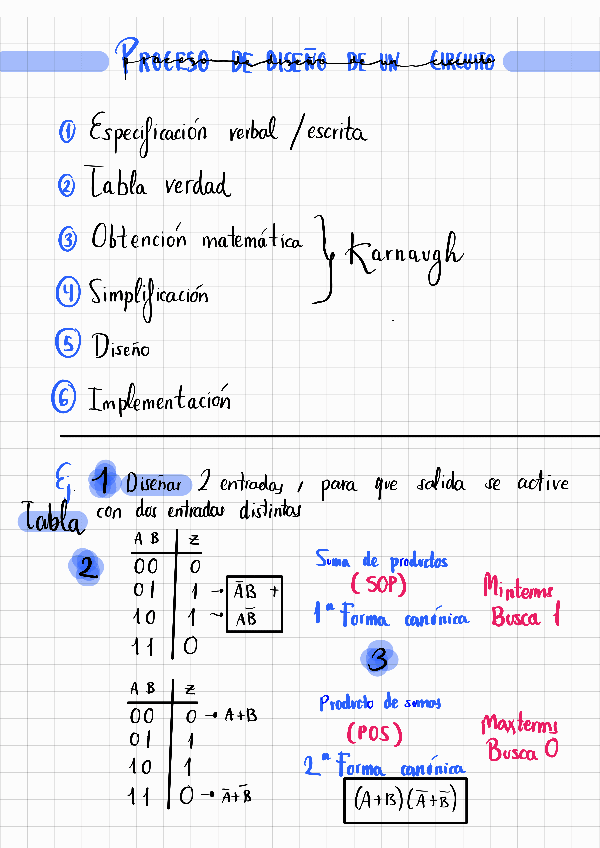 PROCESO DE DISEÑO DE UN CIRCUITO
① Especificación verbal / escrita
② Tabla verdad
③ Obtención matemática
Karnaugh
④ Simplificación
⑤ Diseño
⑥ Implementación
Ej. 1 Diseñar 2 entradas, para que salida se active
Tabla con dos entradas distintas
2
A B | Z
00 | 0
01 | 1 → A̅B +
10 | 1 → AB̅
11 | 0
Suma de productos
(SOP)
1ª Forma canónica
Minterms
Busca 1
3
A B | Z
00 | 0 → A+B
01 | 1
10 | 1
11 | 0 → A̅+B̅
Producto de sumas
(POS)
2ª Forma canónica
Maxterms
Busca 0
(A+B)(A̅+B̅)